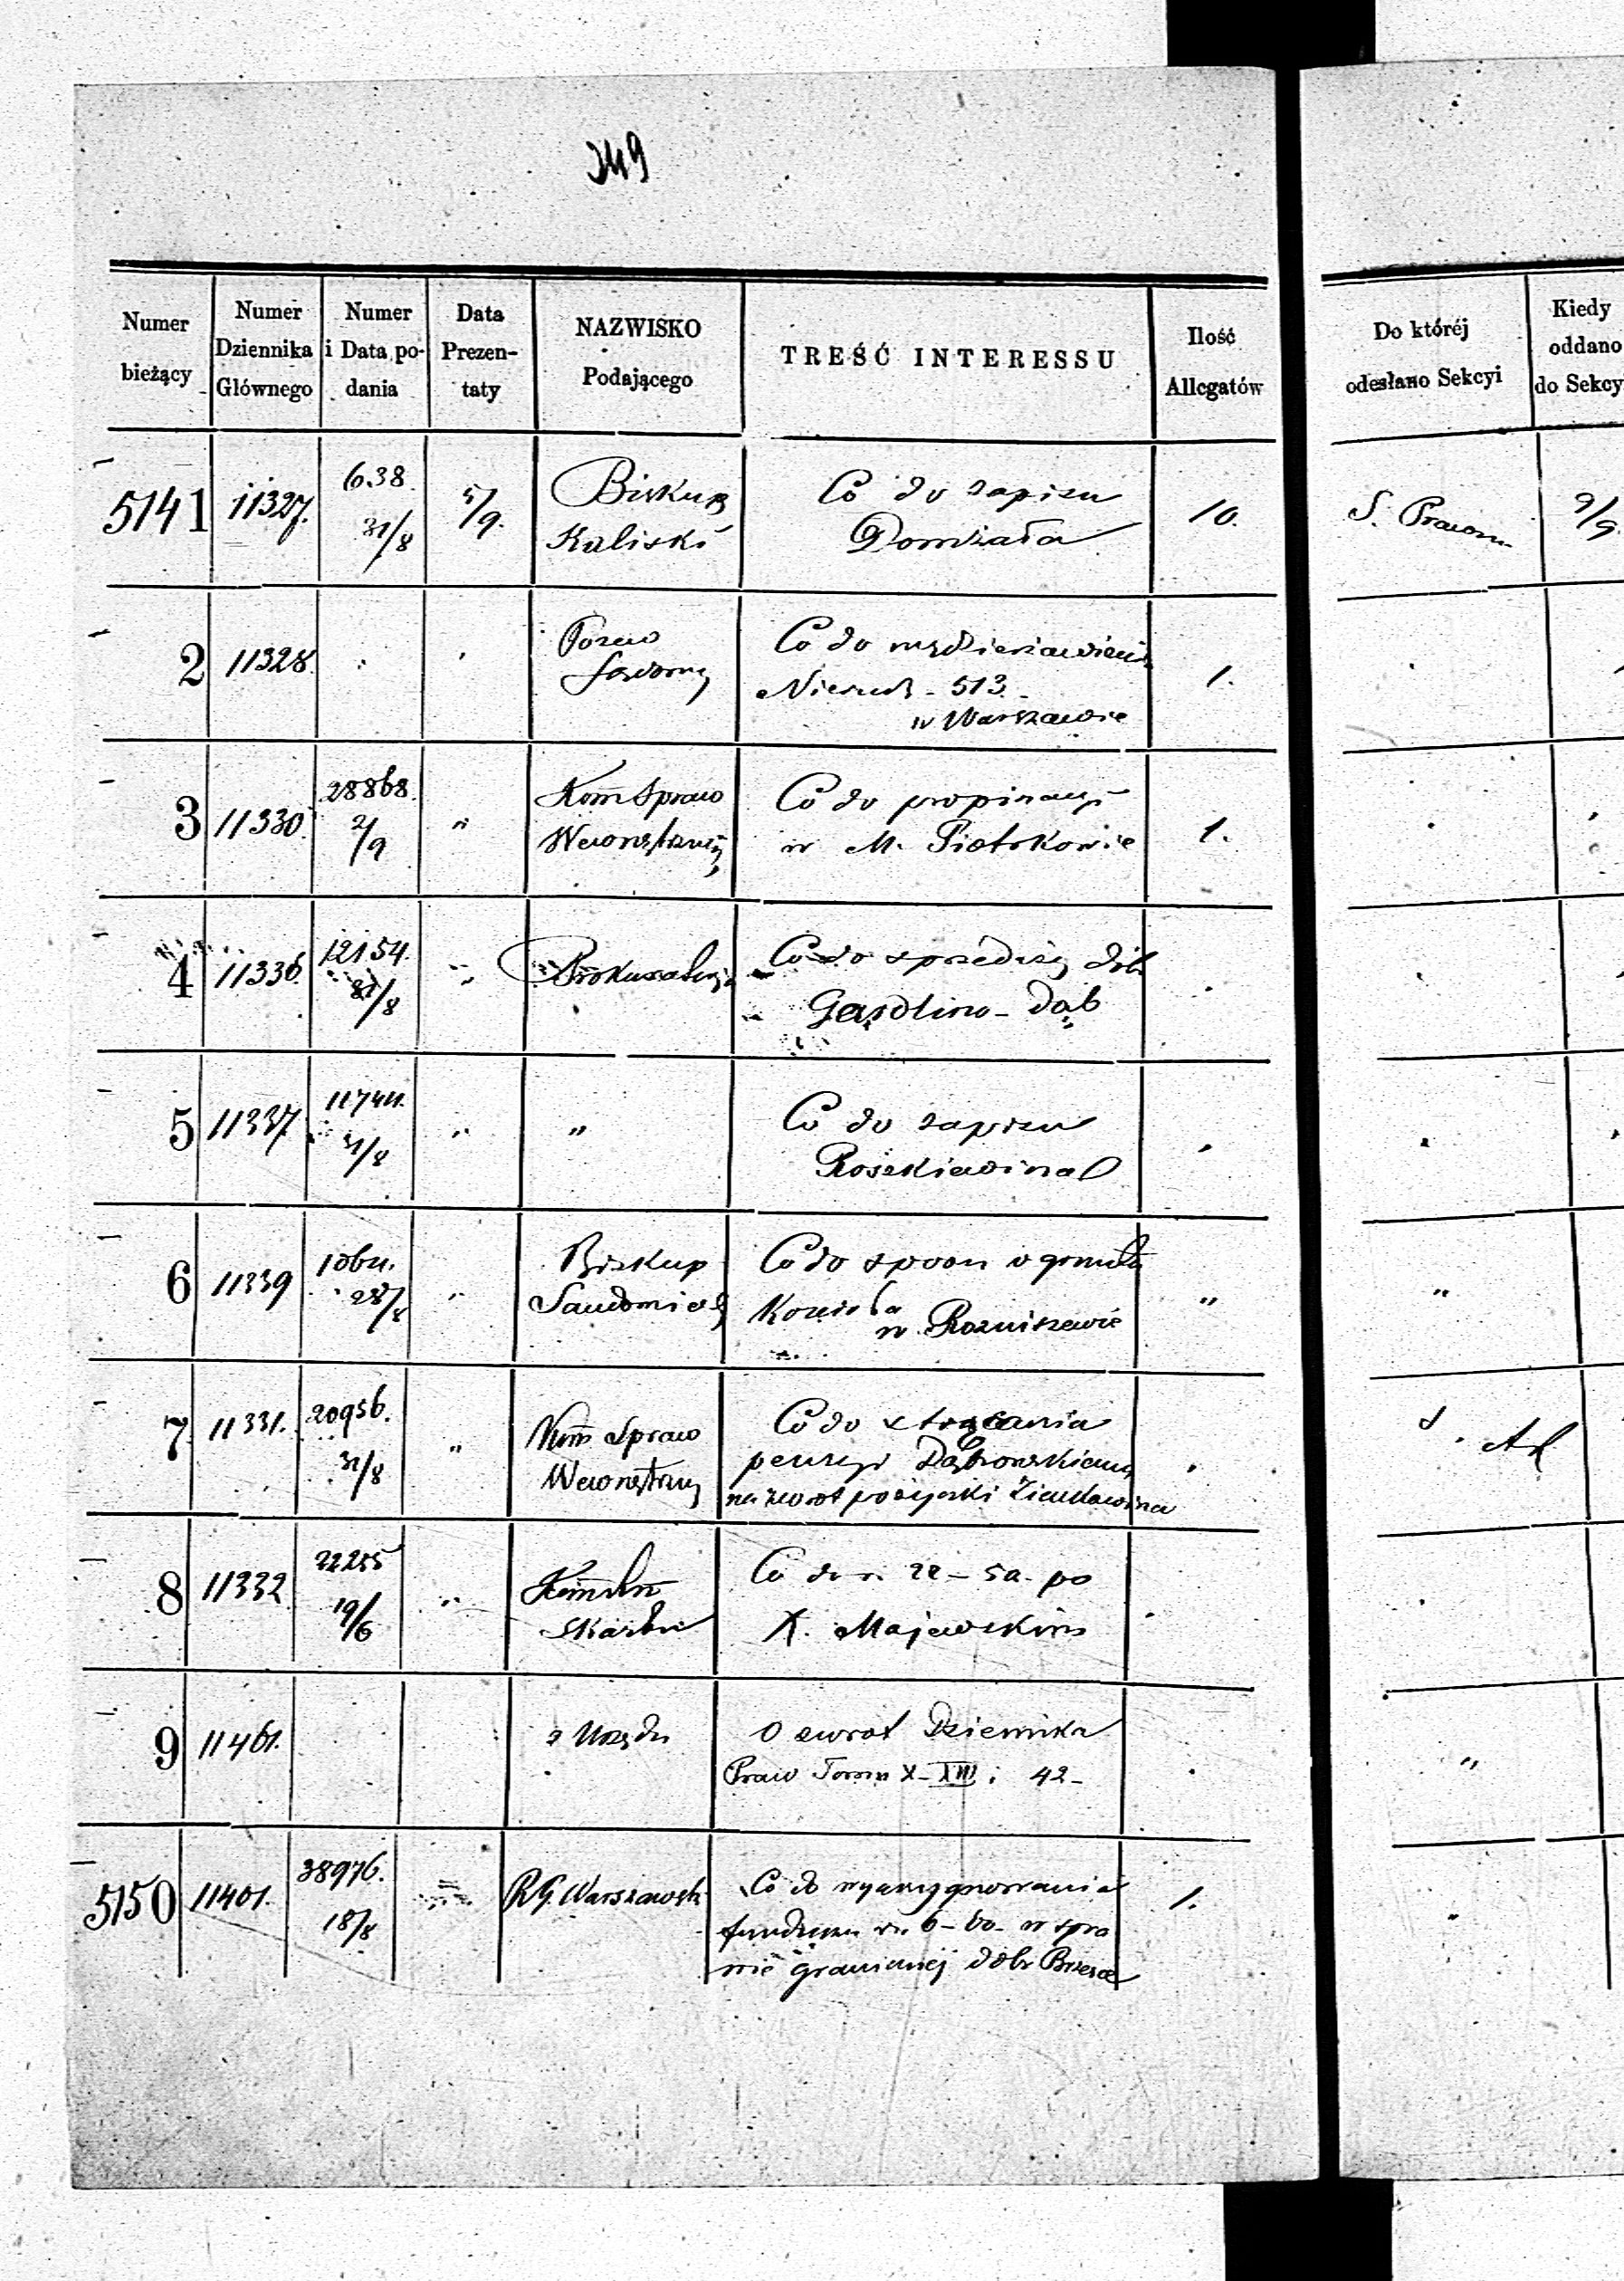 249
Numer bieżący
Numer Dziennika Głównego
Numer i Data podania
Data Prezentaty
NAZWISKO Podającego
TREŚĆ INTERESSU
Ilość Allegatów
Do któréj odesłano Sekcyi
Kiedy oddano do Sekcy
5141 11327. 638 31/8 5/9. Biskup Co do zapisu 10. S. 9/9.
Kaliski Domżała
2 11328. Pozew Co do wydzierżawienia 1.
Sądowy Nieruch - 513 -
w Warszawie
3 11330. 28868. 2/9 " Kom Spraw Co do propinacyi 1.
Wewnętrzny w M. Piotrkowie
4 11336. 12154. 31/8 " Prokuratorya Co do sprzedaży dób
- Dąb
5 11337. 11744. 31/8 " " Co do zapisu
6 11339 28/8 " Biskup Co do sporu o
Kościoła w Rozniszewie "
7 11331. 20956. 31/8 " Kom Spraw Co do strącania S.
Wewnętrzny pensyi Dąbrowskiemu
na zwrot pożyczki
8 11332 22255 19/6 " Co do r. 22 - 5a. po
Skarbu X. Majewskim
9 11461. z Urzędu O zwrot Dziennika "
Praw Tomu X - XIII i 42 -
5150 11401. 38976. 18/8 " R. G. Warszawsk Co do wyasygnowania 1. "
funduszu rs. 6 - 60 - w spra
wie granicznej dóbr